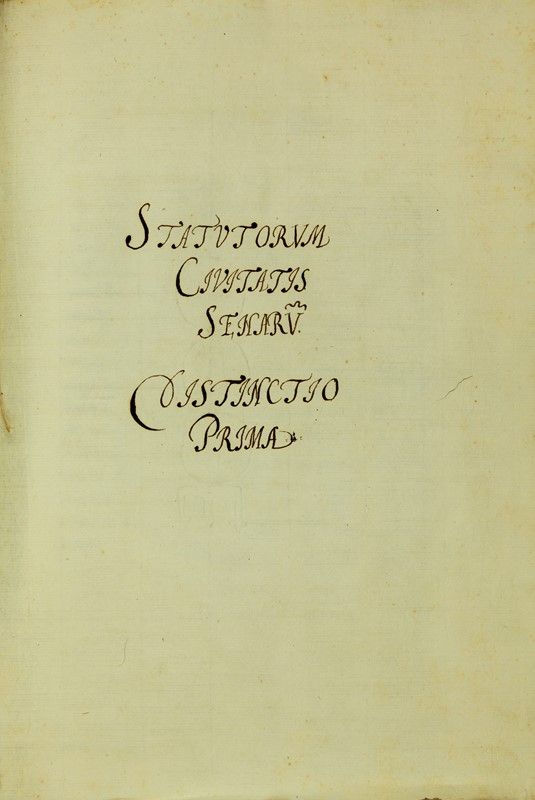 STATVTORVM
CIVITATIS
SENARṼ.
DISTINCTIO
PRIMA